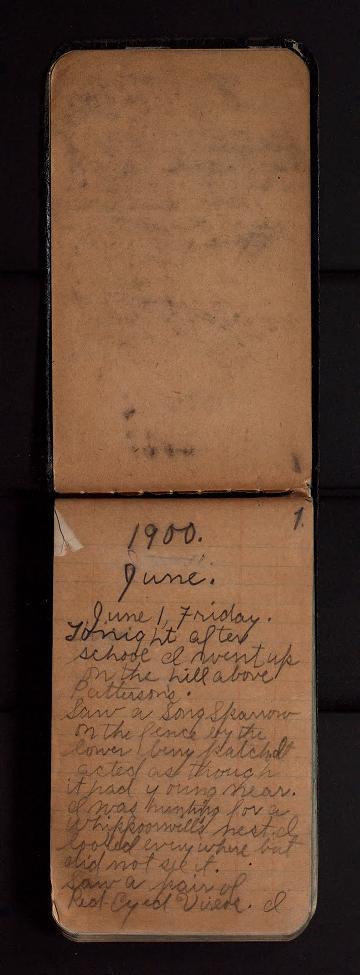 1
1900.
June.
June 1, Friday.
Tonight after
school I went up
on the hill above
Pattersons.
Saw a Song Sparrow
on the fence by the
lower berry patch. It
acted as though
it had young near.
I was hunting for a
Whippoorwill's nest. I
looked everywhere but
did not see it.
Saw a pair of
Red Eyed Vireos. I